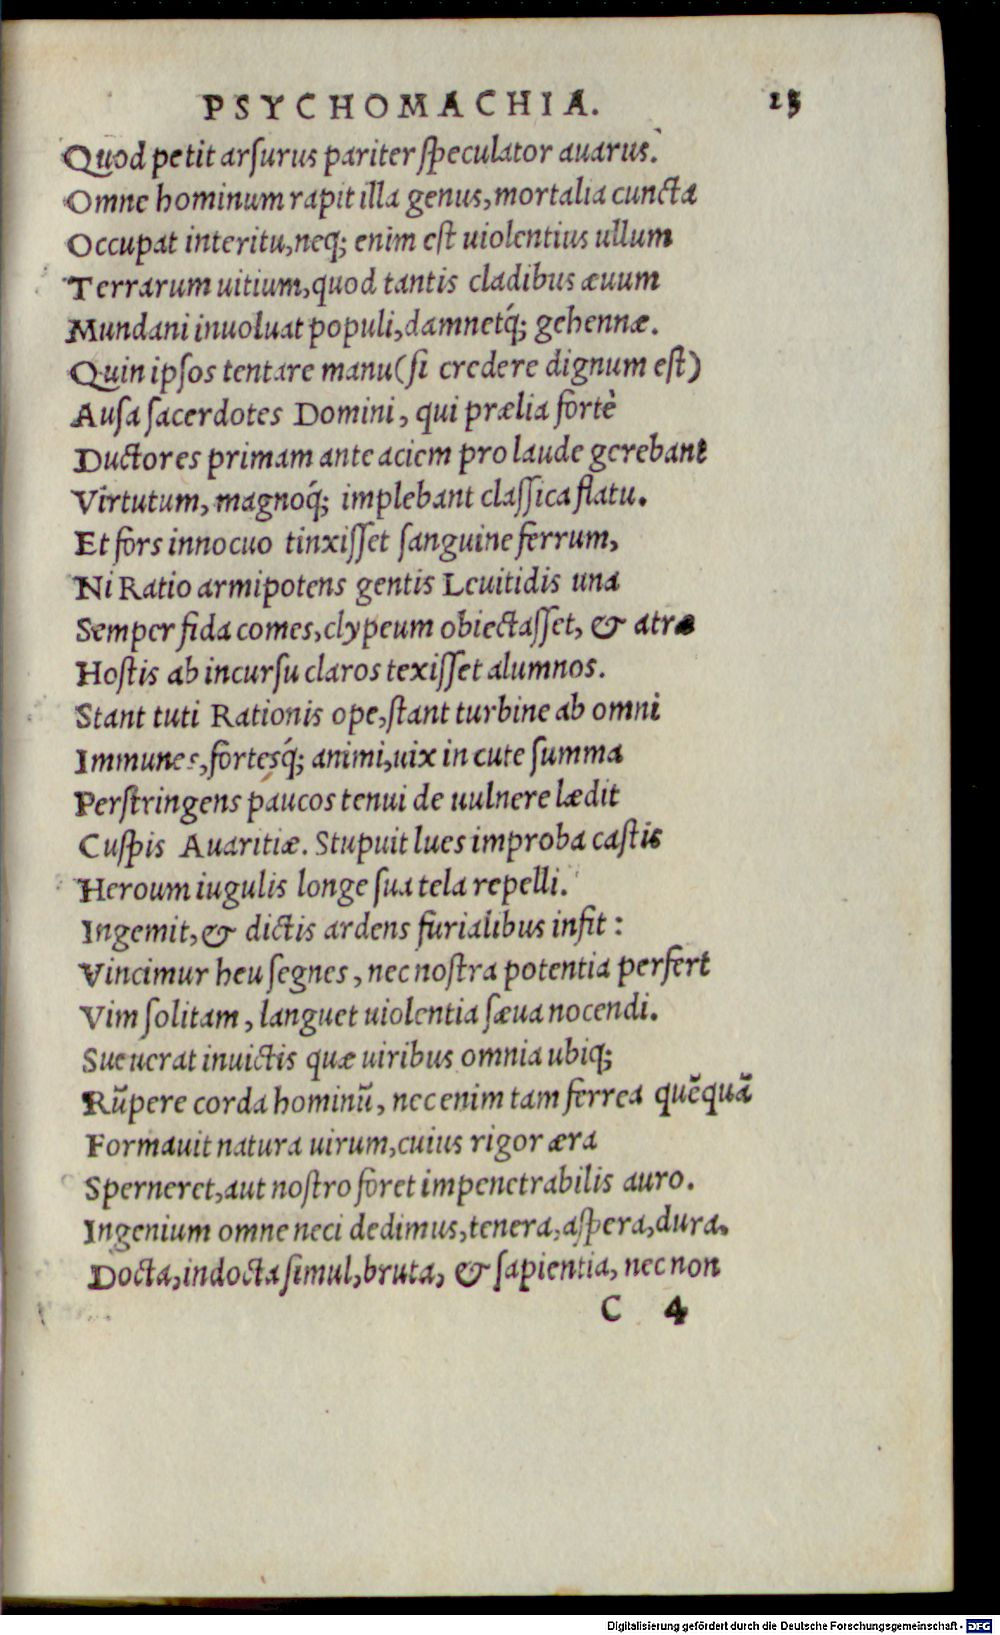 PSYCHOMACHIA. 23
Quod petit arſurus pariter ſpeculator auarus.
Omne hominum rapit illa genus, mortalia cuncta
Occupat interitu, neq; enim eſt uiolentius ullum
Terrarum uitium, quod tantis cladibus æuum
Mundani inuoluat populi, damnetq́; gehennæ.
Quin ipſos tentare manu (ſi credere dignum eſt)
Auſa ſacerdotes Domini, qui prælia fortè
Ductores primam ante aciem pro laude gerebant
Virtutum, magnoq́; implebant claſſica flatu.
Et fors innocuo tinxiſſet ſanguine ferrum,
Ni Ratio armipotens gentis Leuitidis una
Semper fida comes, clypeum obiectaſſet, & atræ
Hoſtis ab incurſu claros texiſſet alumnos.
Stant tuti Rationis ope, ſtant turbine ab omni
Immunes, fortesq́; animi, uix in cute ſumma
Perſtringens paucos tenui de uulnere lædit
Cuſpis Auaritiæ. Stupuit lues improba caſtis
Heroum iugulis longe ſua tela repelli.
Ingemit, & dictis ardens furialibus infit:
Vincimur heu ſegnes, nec noſtra potentia perfert
Vim ſolitam, languet uiolentia ſæua nocendi.
Sueuerat inuictis quæ uiribus omnia ubiq;
Rũpere corda hominũ, nec enim tam ferrea quẽquã
Formauit natura uirum, cuius rigor æra
Sperneret, aut noſtro foret impenetrabilis auro.
Ingenium omne neci dedimus, tenera, aſpera, dura,
Docta, indocta ſimul, bruta, & ſapientia, nec non
C 4
Digitalisierung gefördert durch die Deutsche Forschungsgemeinschaft - DFG